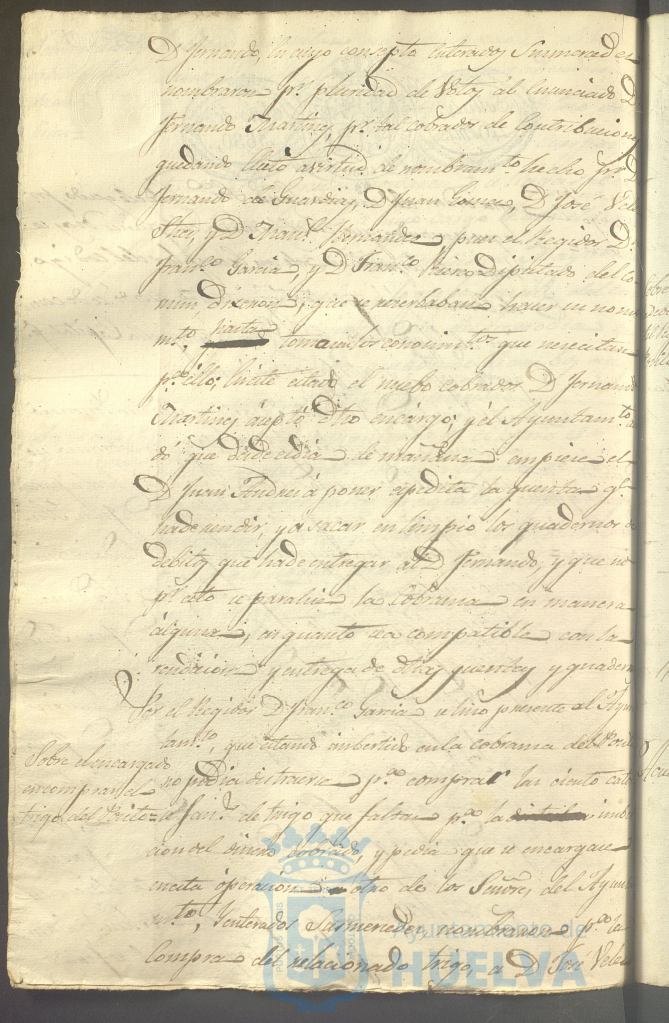 D. Fernando, en cuyo concepto enterados Susmercedes
nombraron pr. pluridad de Votos al enunciado D.
Fernando Martinez, pr. tal cobrador de Contribuciones
quedando electo a virtud de nombramto. hecho pr. D.
Fernando de Guardia, D. Juan Gomez, D. José Vele
y D. Manl. Hernandez, pues el Regidor D.
Franco. Garcia, y D. Franco. Diputado del co-
mun, dixeron, que se reserbaban hacer su nom
mto. hasta tomar los conosimtos. que nesecitan
pa. ello; en este estado el nuebo cobrador D. Fernando
Martinez aseptó dho encargo; y el Ayuntamto. a
dó que desde el dia de mañana empiese el
D. Juan Andres á poner expedita la quenta qe.
ha de rendir, y a sacar en limpio los quadernos de
debitos que ha de entregar al D. Fernando, y que no
pr. esto se paralise la Cobransa en manera
alguna, en quanto sea compatible con la
rendicion y entrega de dhas quentas y quadern
Por el Regidor D. Franco. Garcia se hiso presente al Ayun
tamto., que estando imbertido en la cobransa del Posito
no podia distraerse pa. comprar las ciento cato
Sobre el encargado
en comprar el
trigo del Posito=
se fans. de trigo que faltan pa. la imber
cion del dinero cobrado, y pedia que se encargase
en esta operacion a otro de los Señores del Ayun
mto., Y enterados Susmercedes, nombraron pa. la
Compra del relacionado trigo, a D. José Vele
Ayuntamiento de
HUELVA